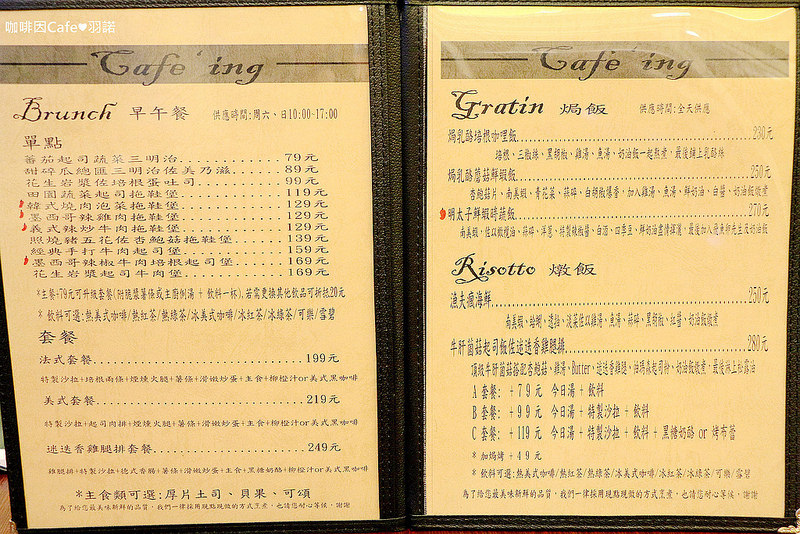 咖啡因Cafe♥羽諾
Cafe' ing
Brunch 早午餐 供應時間:周六、日10:00-17:00
單點
蕃茄起司蔬菜三明治 79元
甜碎瓜總匯三明治佐美乃滋 89元
花生岩漿佐培根蛋吐司 99元
田園蔬菜起司拖鞋堡 119元
韓式燒肉泡菜拖鞋堡 129元
墨西哥辣雞肉拖鞋堡 129元
義式辣炒牛肉拖鞋堡 129元
照燒豬五花佐杏鮑菇拖鞋堡 139元
經典手打牛肉起司堡 159元
墨西哥辣椒牛肉培根起司堡 169元
花生岩漿起司牛肉堡 169元
*主餐+79元可升級套餐(附脆漿薯條或主廚例湯 + 飲料一杯),若需更換其他飲品可折抵20元
* 飲料可選:熱美式咖啡/熱紅茶/熱綠茶/冰美式咖啡/冰紅茶/冰綠茶/可樂/雪碧
套餐
法式套餐 199元
特製沙拉+培根兩條+煙燻火腿+薯條+滑嫩炒蛋+主食+柳橙汁or美式黑咖啡
美式套餐 219元
特製沙拉+起司肉排+煙燻火腿+薯條+滑嫩炒蛋+主食+柳橙汁or美式黑咖啡
迷迭香雞腿排套餐 249元
雞腿排+特製沙拉+德式香腸+薯條+滑嫩炒蛋+主食+黑糖奶酪+柳橙汁or美式黑咖啡
*主食類可選:厚片土司、貝果、可頌
為了給您最美味新鮮的品質,我們一律採用現點現做的方式烹煮,也請您耐心等候,謝謝
Cafe' ing
Gratin 焗飯 供應時間:全天供應
焗乳酪培根咖哩飯 230元
培根、三椒絲、黑胡椒、雞湯、魚湯、奶油飯一起熬煮,最後鋪上乳酪絲
焗乳酪蘑菇鮮蝦飯 250元
杏鮑菇片、南美蝦、青花菜、蒜碎、白胡椒爆香,加入雞湯、魚湯、鮮奶油、白醬、奶油飯燉煮
明太子鮮蝦時蔬飯 270元
南美蝦,佐以橄欖油、蒜碎、洋蔥、特製辣椒醬、白酒、四季豆、鮮奶油
Risotto 燉飯
漁夫瘋海鮮 250元
南美蝦、蛤蜊、透抽、淡菜佐以雞湯、魚湯、蒜碎、黑胡椒、紅醬、奶油飯燉煮
牛肝菌菇起司飯佐迷迭香雞腿排 280元
頂級牛肝菌菇搭配杏鮑菇、雞湯、Butter、迷迭香雞腿、帕瑪森起司粉、奶油飯燉煮,最後淋上松露油
A 套餐: +79元 今日湯 + 飲料
B 套餐: +99元 今日湯 + 特製沙拉 + 飲料
C 套餐: +119元 今日湯 + 特製沙拉 + 飲料 + 黑糖奶酪 or 烤布蕾
* 加焗烤 +49元
* 飲料可選:熱美式咖啡/熱紅茶/熱綠茶/冰美式咖啡/冰紅茶/冰綠茶/可樂/雪碧
為了給您最美味新鮮的品質,我們一律採用現點現做的方式烹煮,也請您耐心等候,謝謝